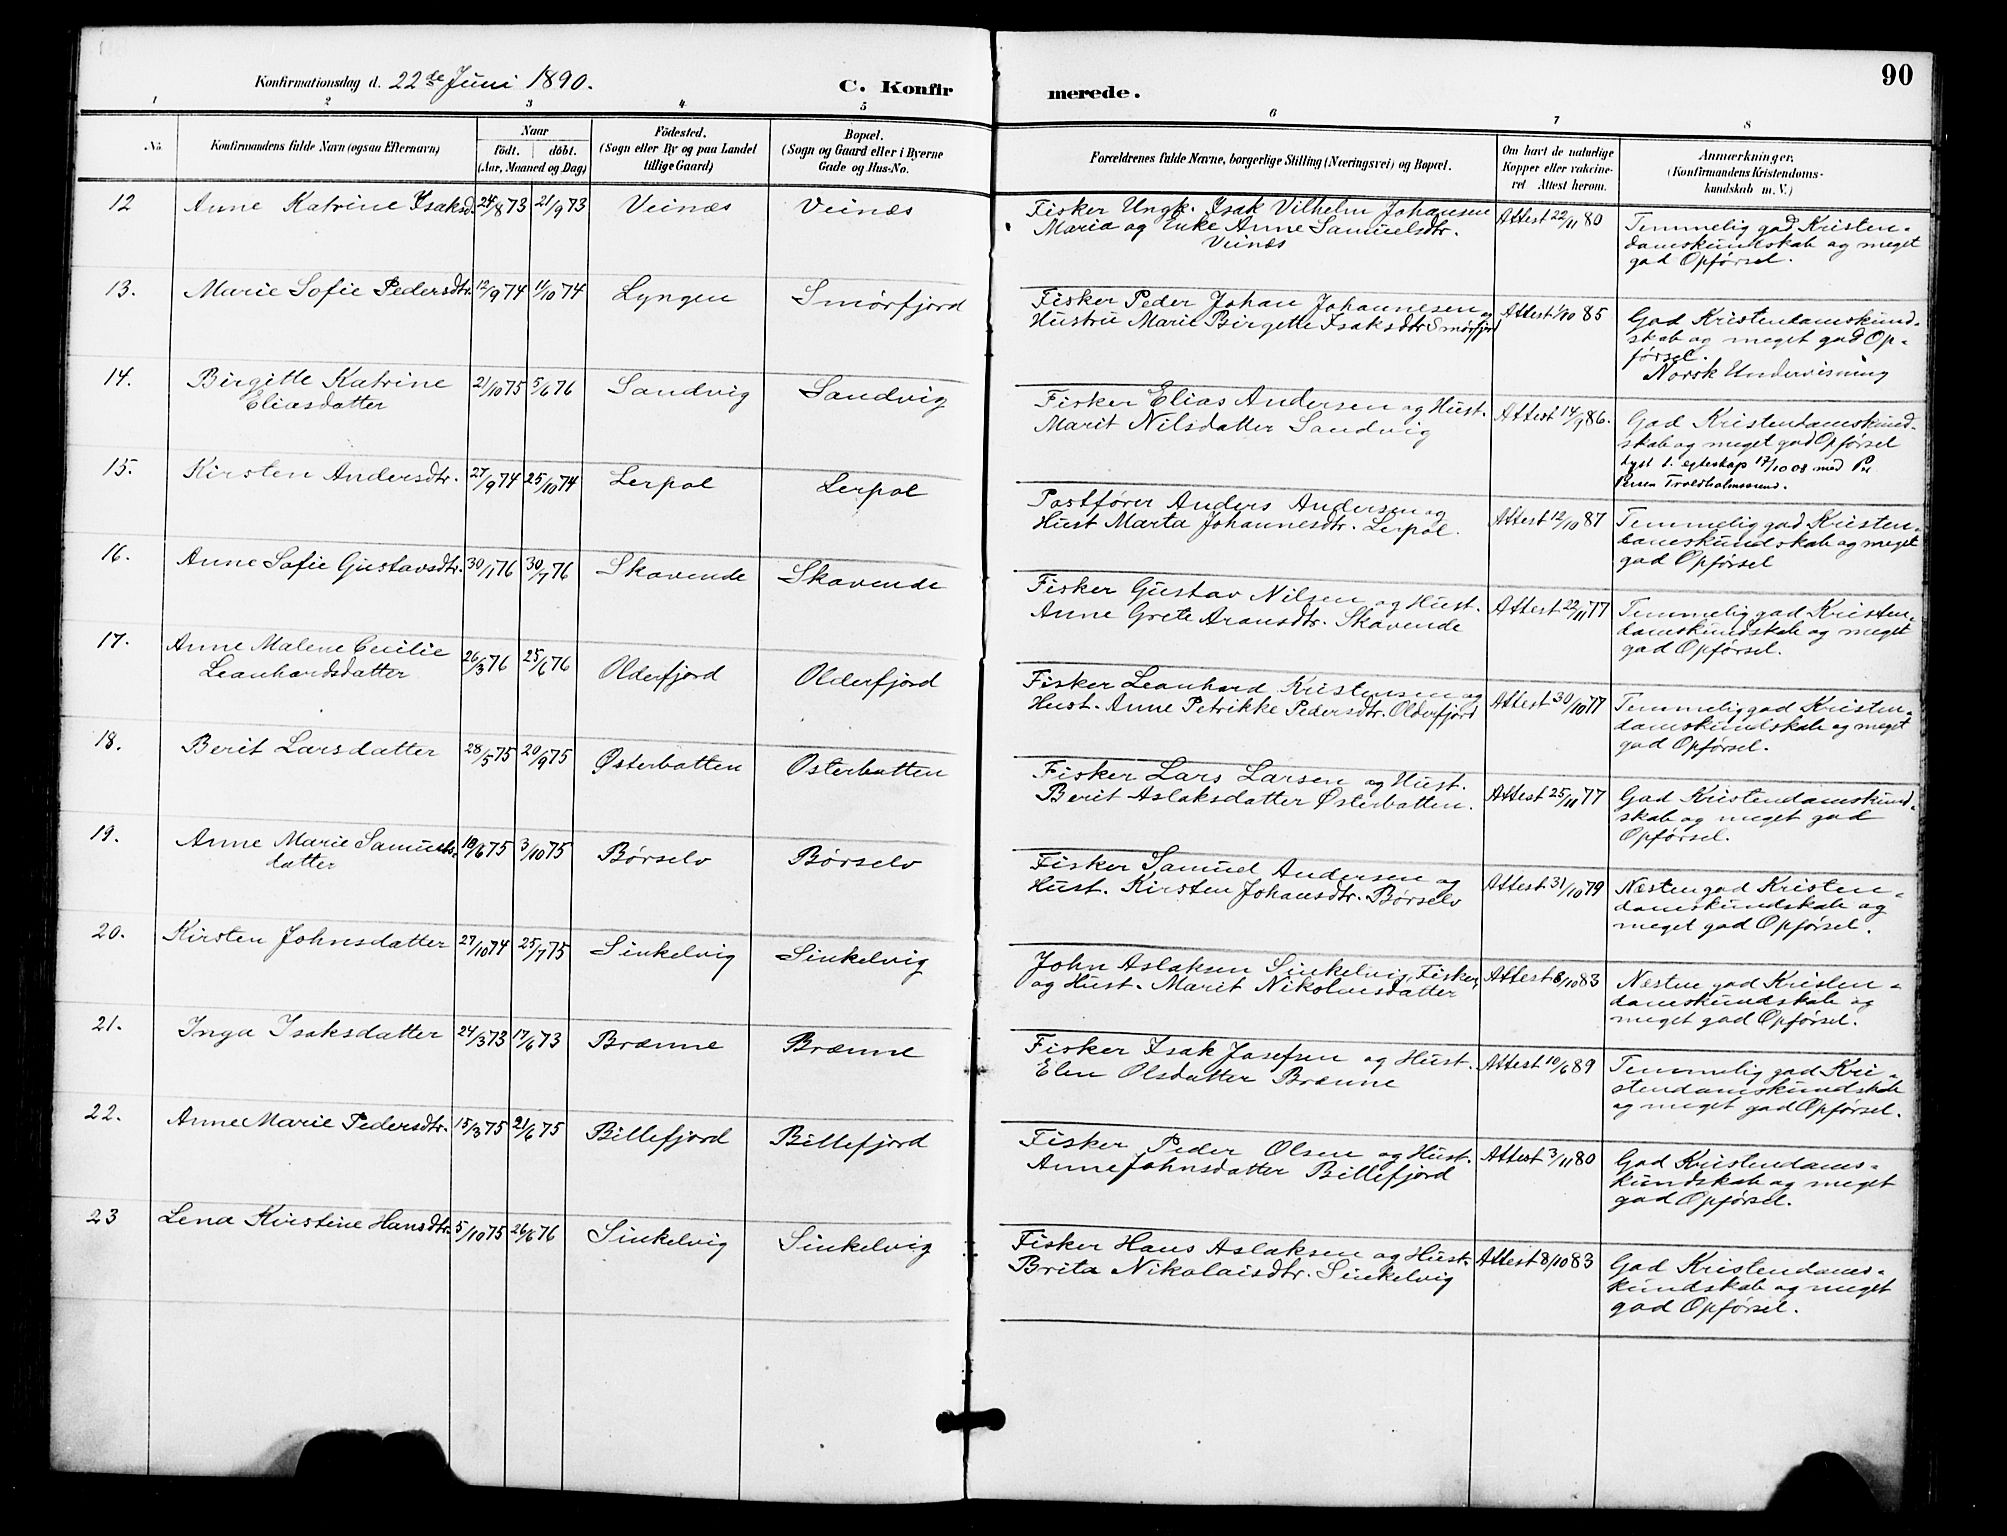 Konfirmationsdag d. 22de Juni 1890.
C. Konfirmerede.
90
1 2 3 4 5 6 7 8
No.
Konfirmandens fulde Navn (ogsaa Efternavn)
Naar
födt. döbt.
(Aar, Maaned og Dag)
Födested.
(Sogn eller By og paa Landet
tillige Gaard)
Bopæl.
(Sogn og Gaard eller i Byerne
Gade og Hus-No.
Forældrenes fulde Navne, borgerlige Stilling (Næringsvei) og Bopæl.
Om havt de naturlige
Kopper eller vakcine-
ret Attest herom.
Anmærkninger.
(Konfirmandens Kristendoms-
kundskab m.V.)
12 Anne Katrine Isaksd. 24/8 73 21/9 73 Veinæs Veinæs
Fisker Ungk. Isak Vilhelm Johansen
Maria og Enke Anne Samuelsdtr.
Veinæs
Attest 22/11 80
Temmelig god Kristen-
domskundskab og meget
god Opførsel.
13. Marie Sofie Pedersdtr. 12/9 74 11/10 74 Lyngen Smørfjord
Fisker Peder Johan Johannesen og
Hustru Marie Birgette Isaksdtr Smørfjord
Attest 1/10 85
God Kristendomskund-
skab og meget god Op-
førsel.
Norsk Undervisning
14. Birgitte Katrine
Eliasdatter
21/10 75 5/6 76 Sandvig Sandvig
Fisker Elias Andersen og Hust.
Marit Nilsdatter Sandvig
Attest 14/9 86.
God Kristendomskund-
skab og meget god Opførsel
Lyst t. egteskap 17/10 08 med Per
Persen Troldholmsund.
15. Kirsten Andersdtr. 27/9 74 25/10 74 Lerpol Lerpol
Postfører Anders Andersen og
Hust Marta Johannesdtr. Lerpol.
Attest 12/10 87
Temmelig god Kristen-
domskundskab og meget
god Opførsel
16. Anne Sofie Gustavsdtr. 30/1 76 30/7 76 Skovende Skovende
Fisker Gustav Nilsen og Hust.
Anne Grete Aronsdtr. Skovende
Attest 22/11 77
Temmelig god Kristen-
domskundskab og meget
god Opførsel.
17. Anne Malene Cecilie
Leonhardsdatter
26/3 76 25/6 76 Olderfjord Olderfjord
Fisker Leonhard Kristensen og
Hust. Anne Petrikke Pedersdtr. Olderfjord
Attest 30/10 77
Temmelig god Kristen-
domskundskab og meget
god Opførsel.
18. Berit Larsdatter 28/5 75 20/9 75 Østerbotten Osterbotten
Fisker Lars Larsen og Hust.
Berit Aslaksdatter Østerbotten.
Attest 25/11 77
God Kristendomskund-
skab og meget god
Opførsel.
19. Anne Marie Samuels-
datter
18/6 75 3/10 75 Børselv Børselv
Fisker Samuel Andersen og
Hust. Kirsten Johansdtr. Børselv
Attest 31/10 79
Næsten god Kristen-
domskundskab og
meget god Opførsel.
20. Kirsten Johnsdatter 27/10 74 25/7 75 Sinkelvig Sinkelvig
John Aslaksen Sinkelvig, Fisker,
og Hust. Marit Nikolaisdatter
Attest 8/10 83
Næsten god Kristen-
domskundskab og
meget god Opførsel.
21. Inga Isaksdatter 24/3 73 17/6 73 Brænne Brænne
Fisker Isak Josefsen og Hust.
Elen Olsdatter Brænne
Attest 10/6 89
Temmelig god Kri-
stendomskundskab
og meget god Opførsel.
22. Anne Marie Pedersdtr. 15/3 75 21/6 75 Billefjord Billefjord
Fisker Peder Olsen og Hust.
Anne Johnsdatter Billefjord
Attest 3/11 80
God Kristendoms-
kundskab og meget
god Opførsel.
23 Lena Kirstine Hansdtr. 5/10 75 26/6 76 Sinkelvig Sinkelvig
Fisker Hans Aslaksen og Hust.
Brita Nikolaisdtr. Sinkelvig
Attest 8/10 83
God Kristendoms-
kundskab og meget
god Opførsel.